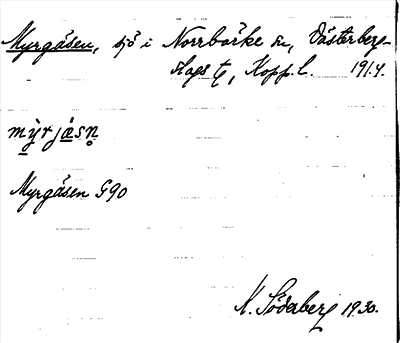 Myrgåsen, sjö i Norrbärke sn, Västerbergs-
lags tg, Kopp.l. 1914.
mỳrjåsn̥
Myrgåsen G90
K. Söderberg 1930.